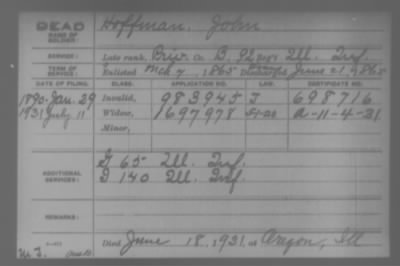 DEAD
NAME OF SOLDIER: Hoffman, John
SERVICE: Late rank, Priv. Co. B, 92 Reg't Ill. Inf.
TERM OF SERVICE: Enlisted Mch 7, 1865 Discharged June 21, 1865
DATE OF FILING. CLASS. APPLICATION NO. LAW. CERTIFICATE NO.
1890-Jan. 29 Invalid, 983945 J 698716
1931 July 11 Widow, 1697978 A-11-4-31
Minor,
ADDITIONAL SERVICES: G 65 Ill. Inf.
D 140 Ill. Inf.
REMARKS:
Died June 18, 1931, at Oregon, Ill